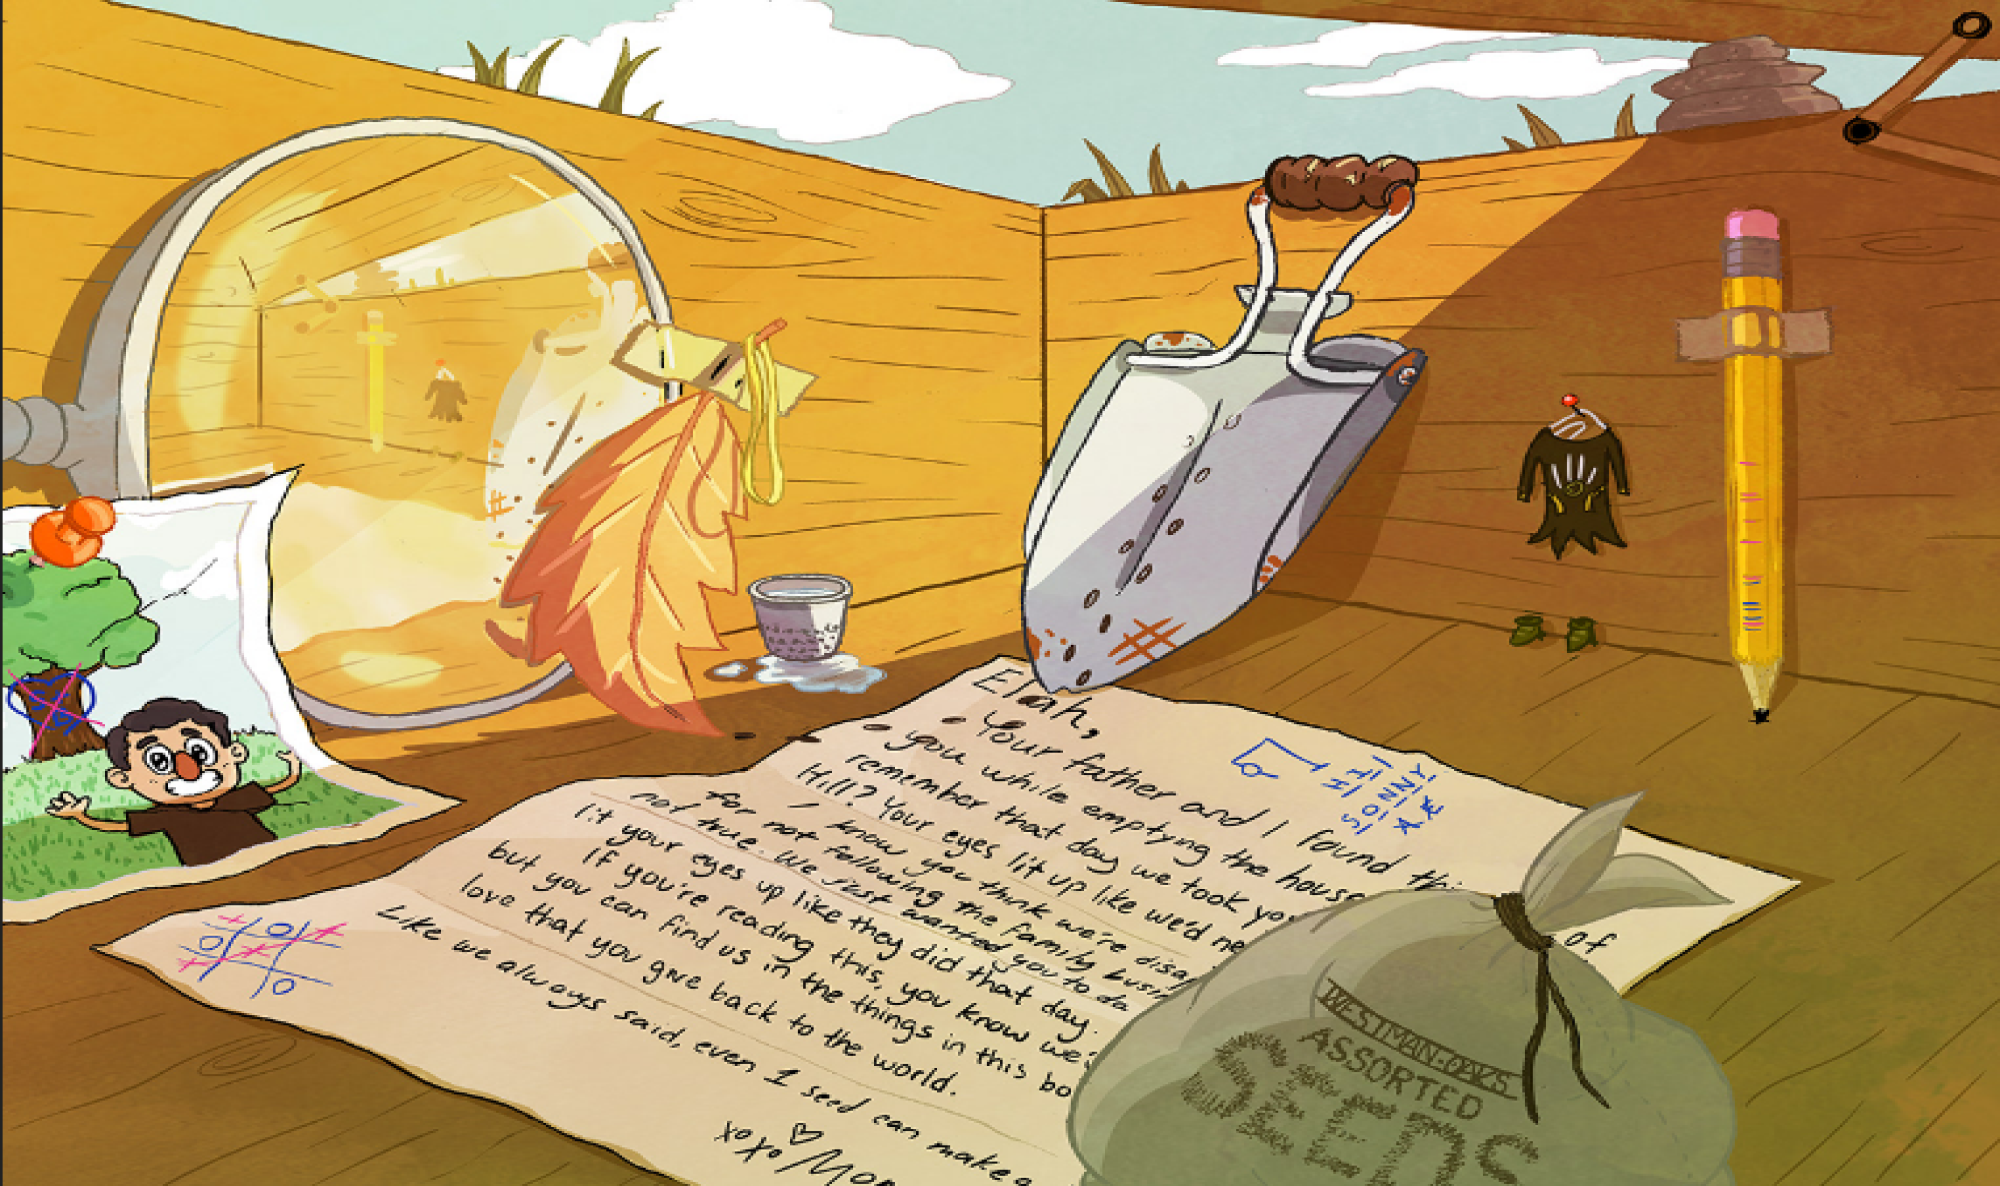 Elah,
Your father and I found thi of
you while emptying the house
remember that day we took you
Hill? Your eyes lit up like we'd ne
I know you think we're disa
for not following the family busi
not true. We just wanted you to do
lit your eyes up like they did that day.
If you're reading this, you know we
but you can find us in the things in this bo
love that you give back to the world.
Like we always said, even 1 seed can make a
xoxo Mom
SONNY
WESTMAN-OAKS
ASSORTED
SEEDS